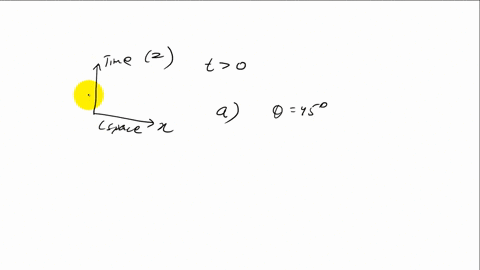 Time (z)
t > 0
(space x
a) θ = 45°